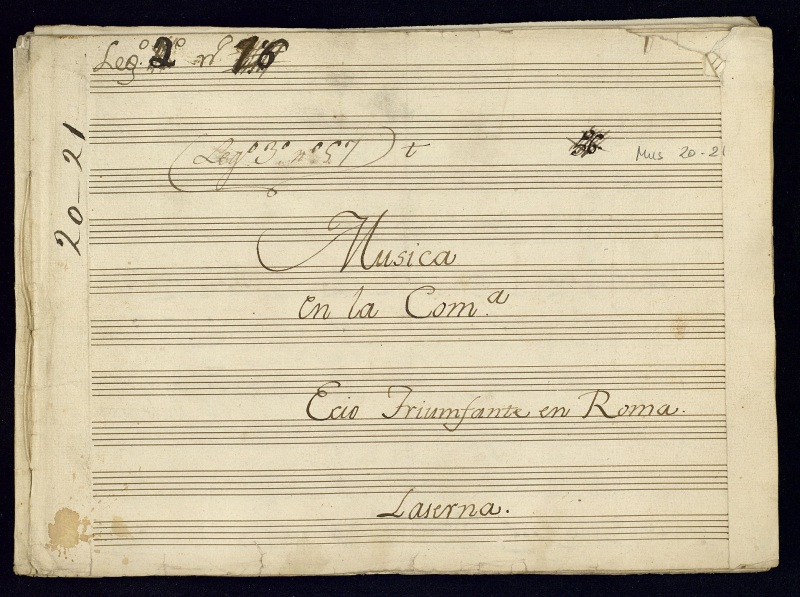 Leg.º 2 nº 16
(Legº 3º nº 57) t
Mus 20-21
20-21
Musica
en la Com.ª
Ecio Triumfante en Roma.
Laserna.